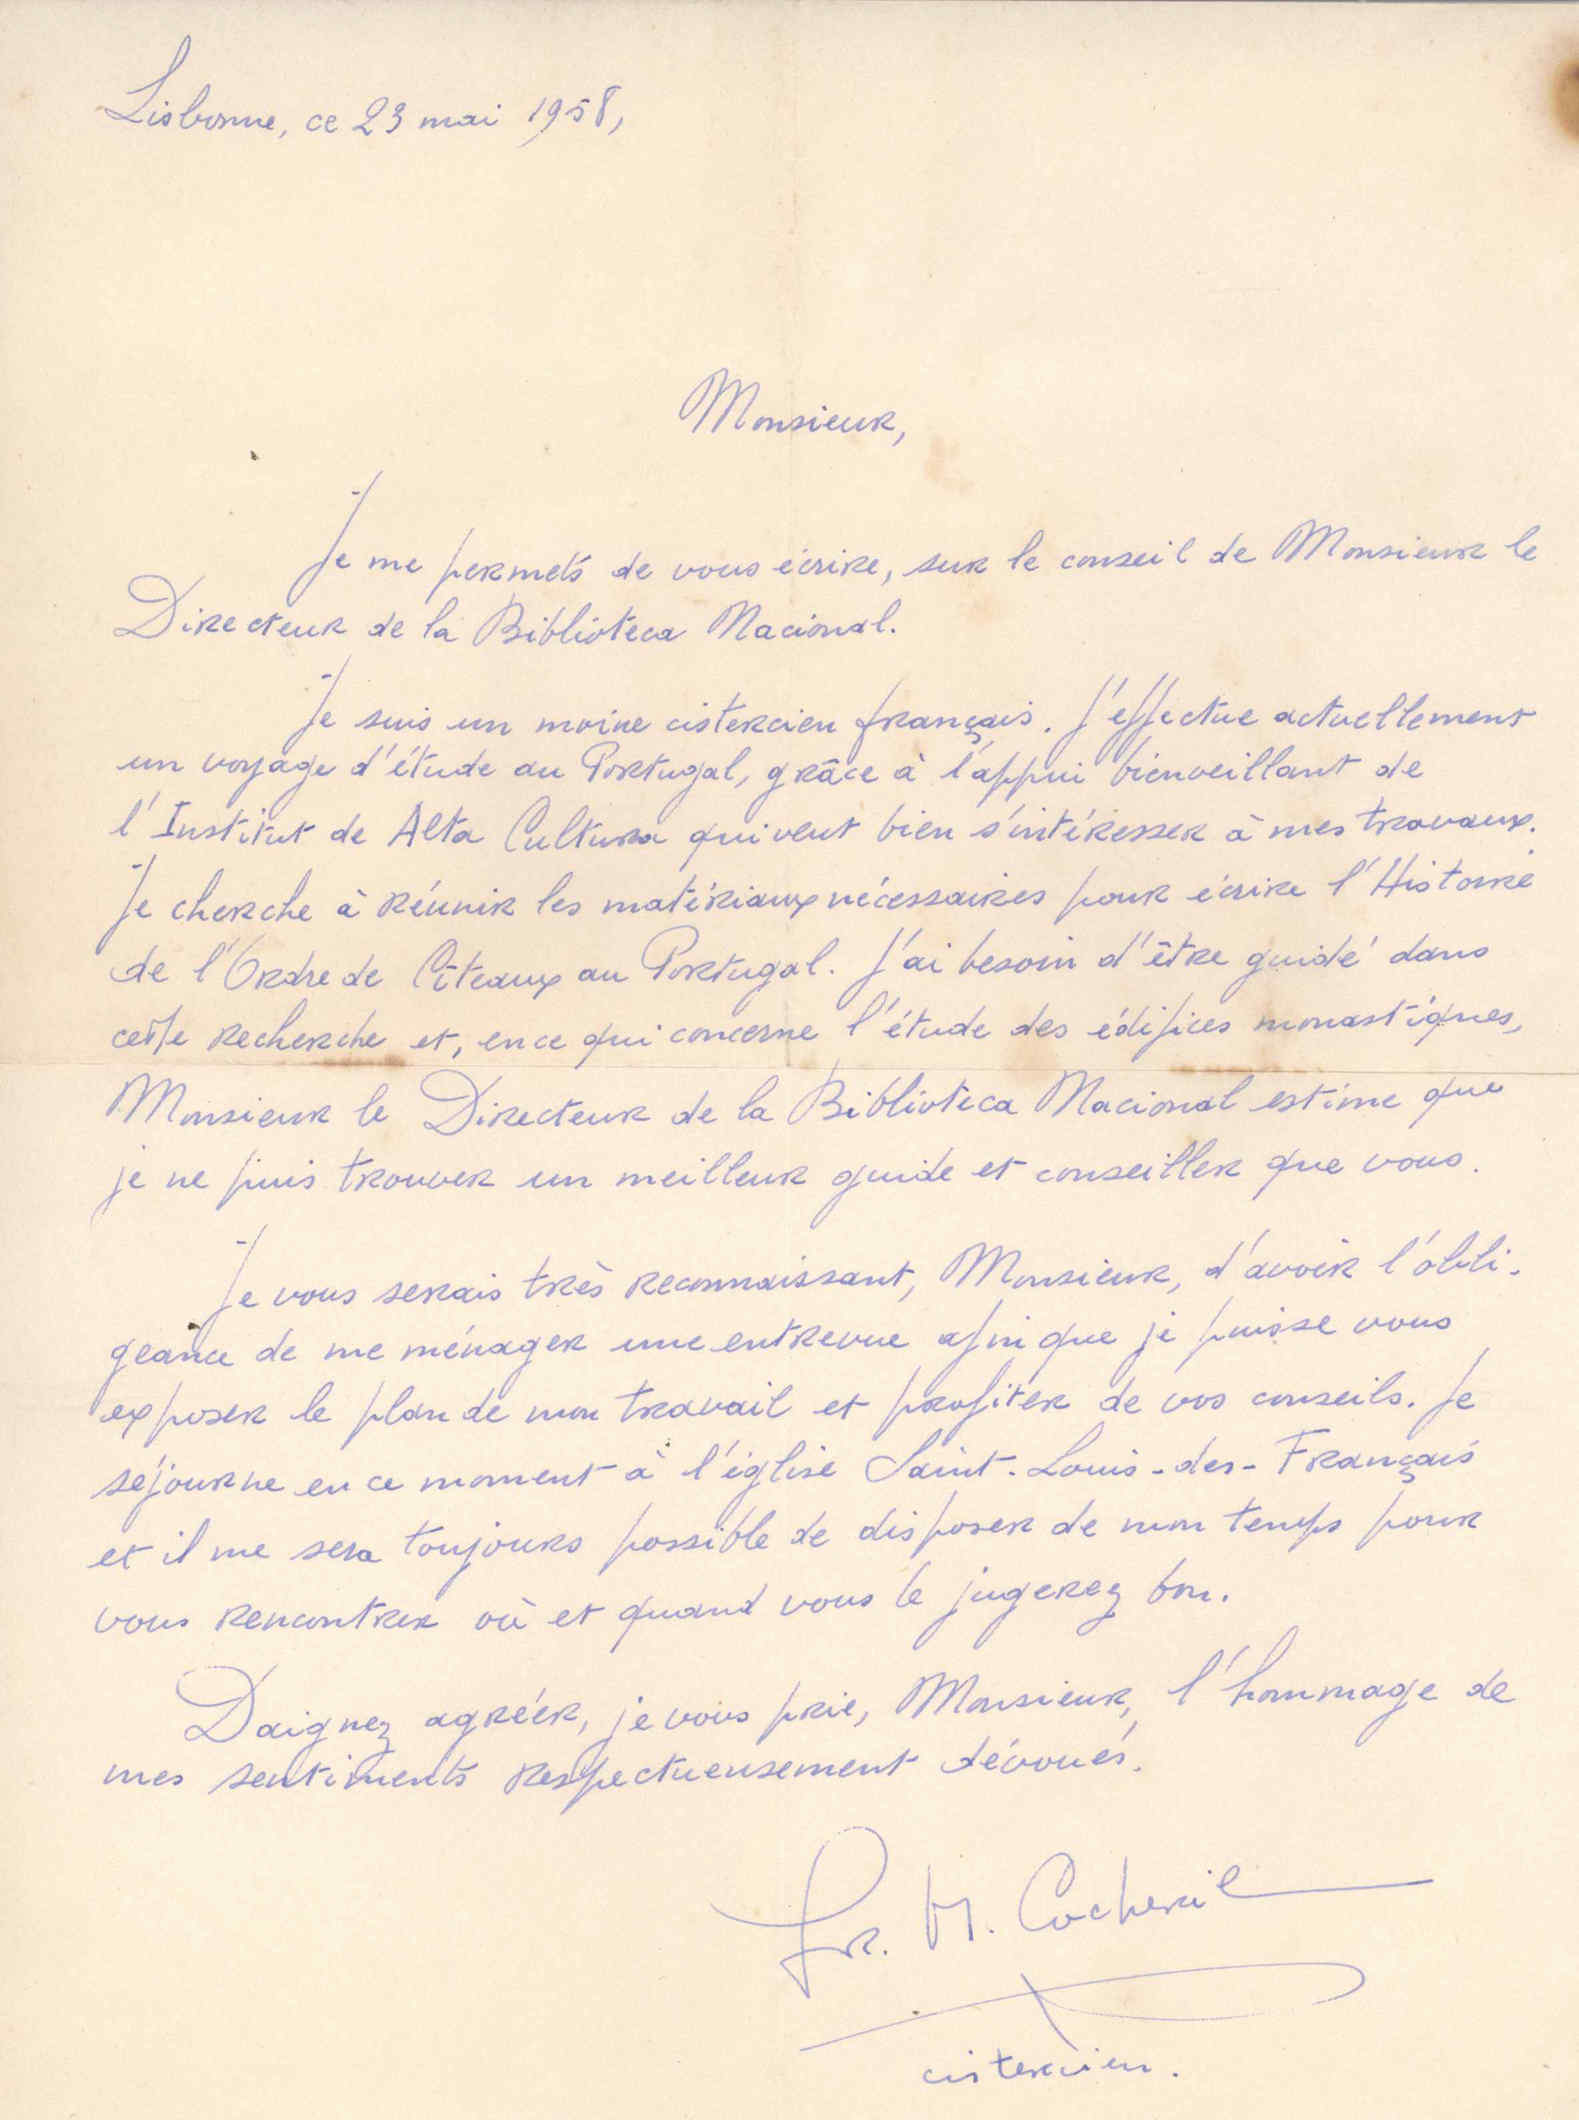 Lisbonne, ce 23 mai 1958,
Monsieur,
Je me permets de vous écrire, sur le conseil de Monsieur le
Directeur de la Biblioteca Nacional.
Je suis un moine cistercien français. J'effectue actuellement
un voyage d'étude au Portugal, grâce à l'appui bienveillant de
l'Institut de Alta Cultura qui veut bien s'intéresser à mes travaux.
Je cherche à réunir les matériaux nécessaires pour écrire l'Histoire
de l'Ordre de Cîteaux au Portugal. J'ai besoin d'être guidé dans
cette recherche et, en ce qui concerne l'étude des édifices monastiques,
Monsieur le Directeur de la Biblioteca Nacional estime que
je ne puis trouver un meilleur guide et conseiller que vous.
Je vous serais très reconnaissant, Monsieur, d'avoir l'obli-
geance de me ménager une entrevue afin que je puisse vous
exposer le plan de mon travail et profiter de vos conseils. Je
séjourne en ce moment à l'église Saint-Louis-des-Français
et il me sera toujours possible de disposer de mon temps pour
vous rencontrer où et quand vous le jugerez bon.
Daignez agréer, je vous prie, Monsieur, l'hommage de
mes sentiments respectueusement dévoués.
fr. M. Cocheril
cistercien.